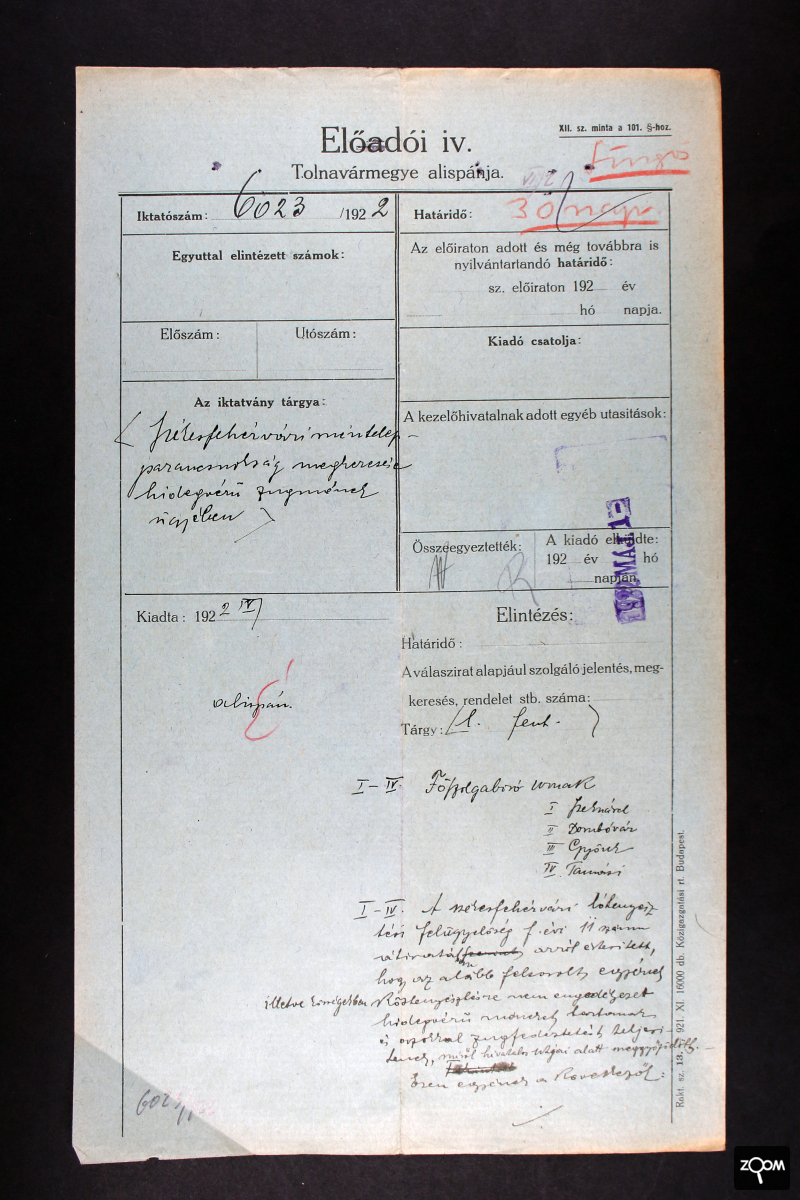 XII. sz. minta a 101. §-hoz.
Előadói iv.
Tolnavármegye alispánja.
Sürgős
Iktatószám: 6023 /1922
Határidő: 30 nap.
Egyuttal elintézett számok:
Az előiraton adott és még továbbra is
nyilvántartandó határidő:
sz. előiraton 192 év
hó napja.
Előszám: Utószám:
Kiadó csatolja:
Az iktatvány tárgya:
Székesfehérvári méntelep-
parancsnokság megkeresése
hidegvérű zugmének
ügyében
A kezelőhivatalnak adott egyéb utasitások:
Összeegyeztették:
A kiadó elküldte:
192 év hó
napján.
MÁJ 1
Kiadta: 1922 IV
alispán.
Elintézés:
Határidő:
A válaszirat alapjául szolgáló jelentés, meg-
keresés, rendelet stb. száma:
Tárgy: (l. fent.)
I–IV. Főszolgabíró
I Szekszárd
II Dombóvár
III Gyönk
IV. Tamási
I–IV. A székesfehérvári lótenyész
tési felügyelőség f. évi 11 számu
átiratával arról értesitett,
hogy az alább felsorolt egyének
illetve községekben köztenyésztésre nem engedélyezett
hidegvérű méneket tartanak
és azokkal zugfedeztetést teljesi-
tenek, miről hivatalos utjai alatt meggyőződött.
Ezen egyének a következők:
6023/
Rakt. sz. 13. 921. XI. 16000 db. Közigazgatási rt. Budapest.
ZOOM